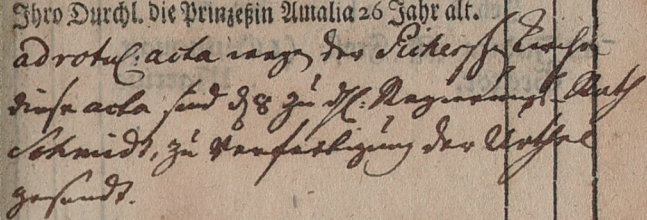 Ihro Durchl. die Prinzeßin Amalia 26 Jahr alt.
ad rotul: acta wegen der
diese acta sind d 8 zu H: Regierungs Rath
Schmidt, zu Verfertigung der Urthel
gesandt.